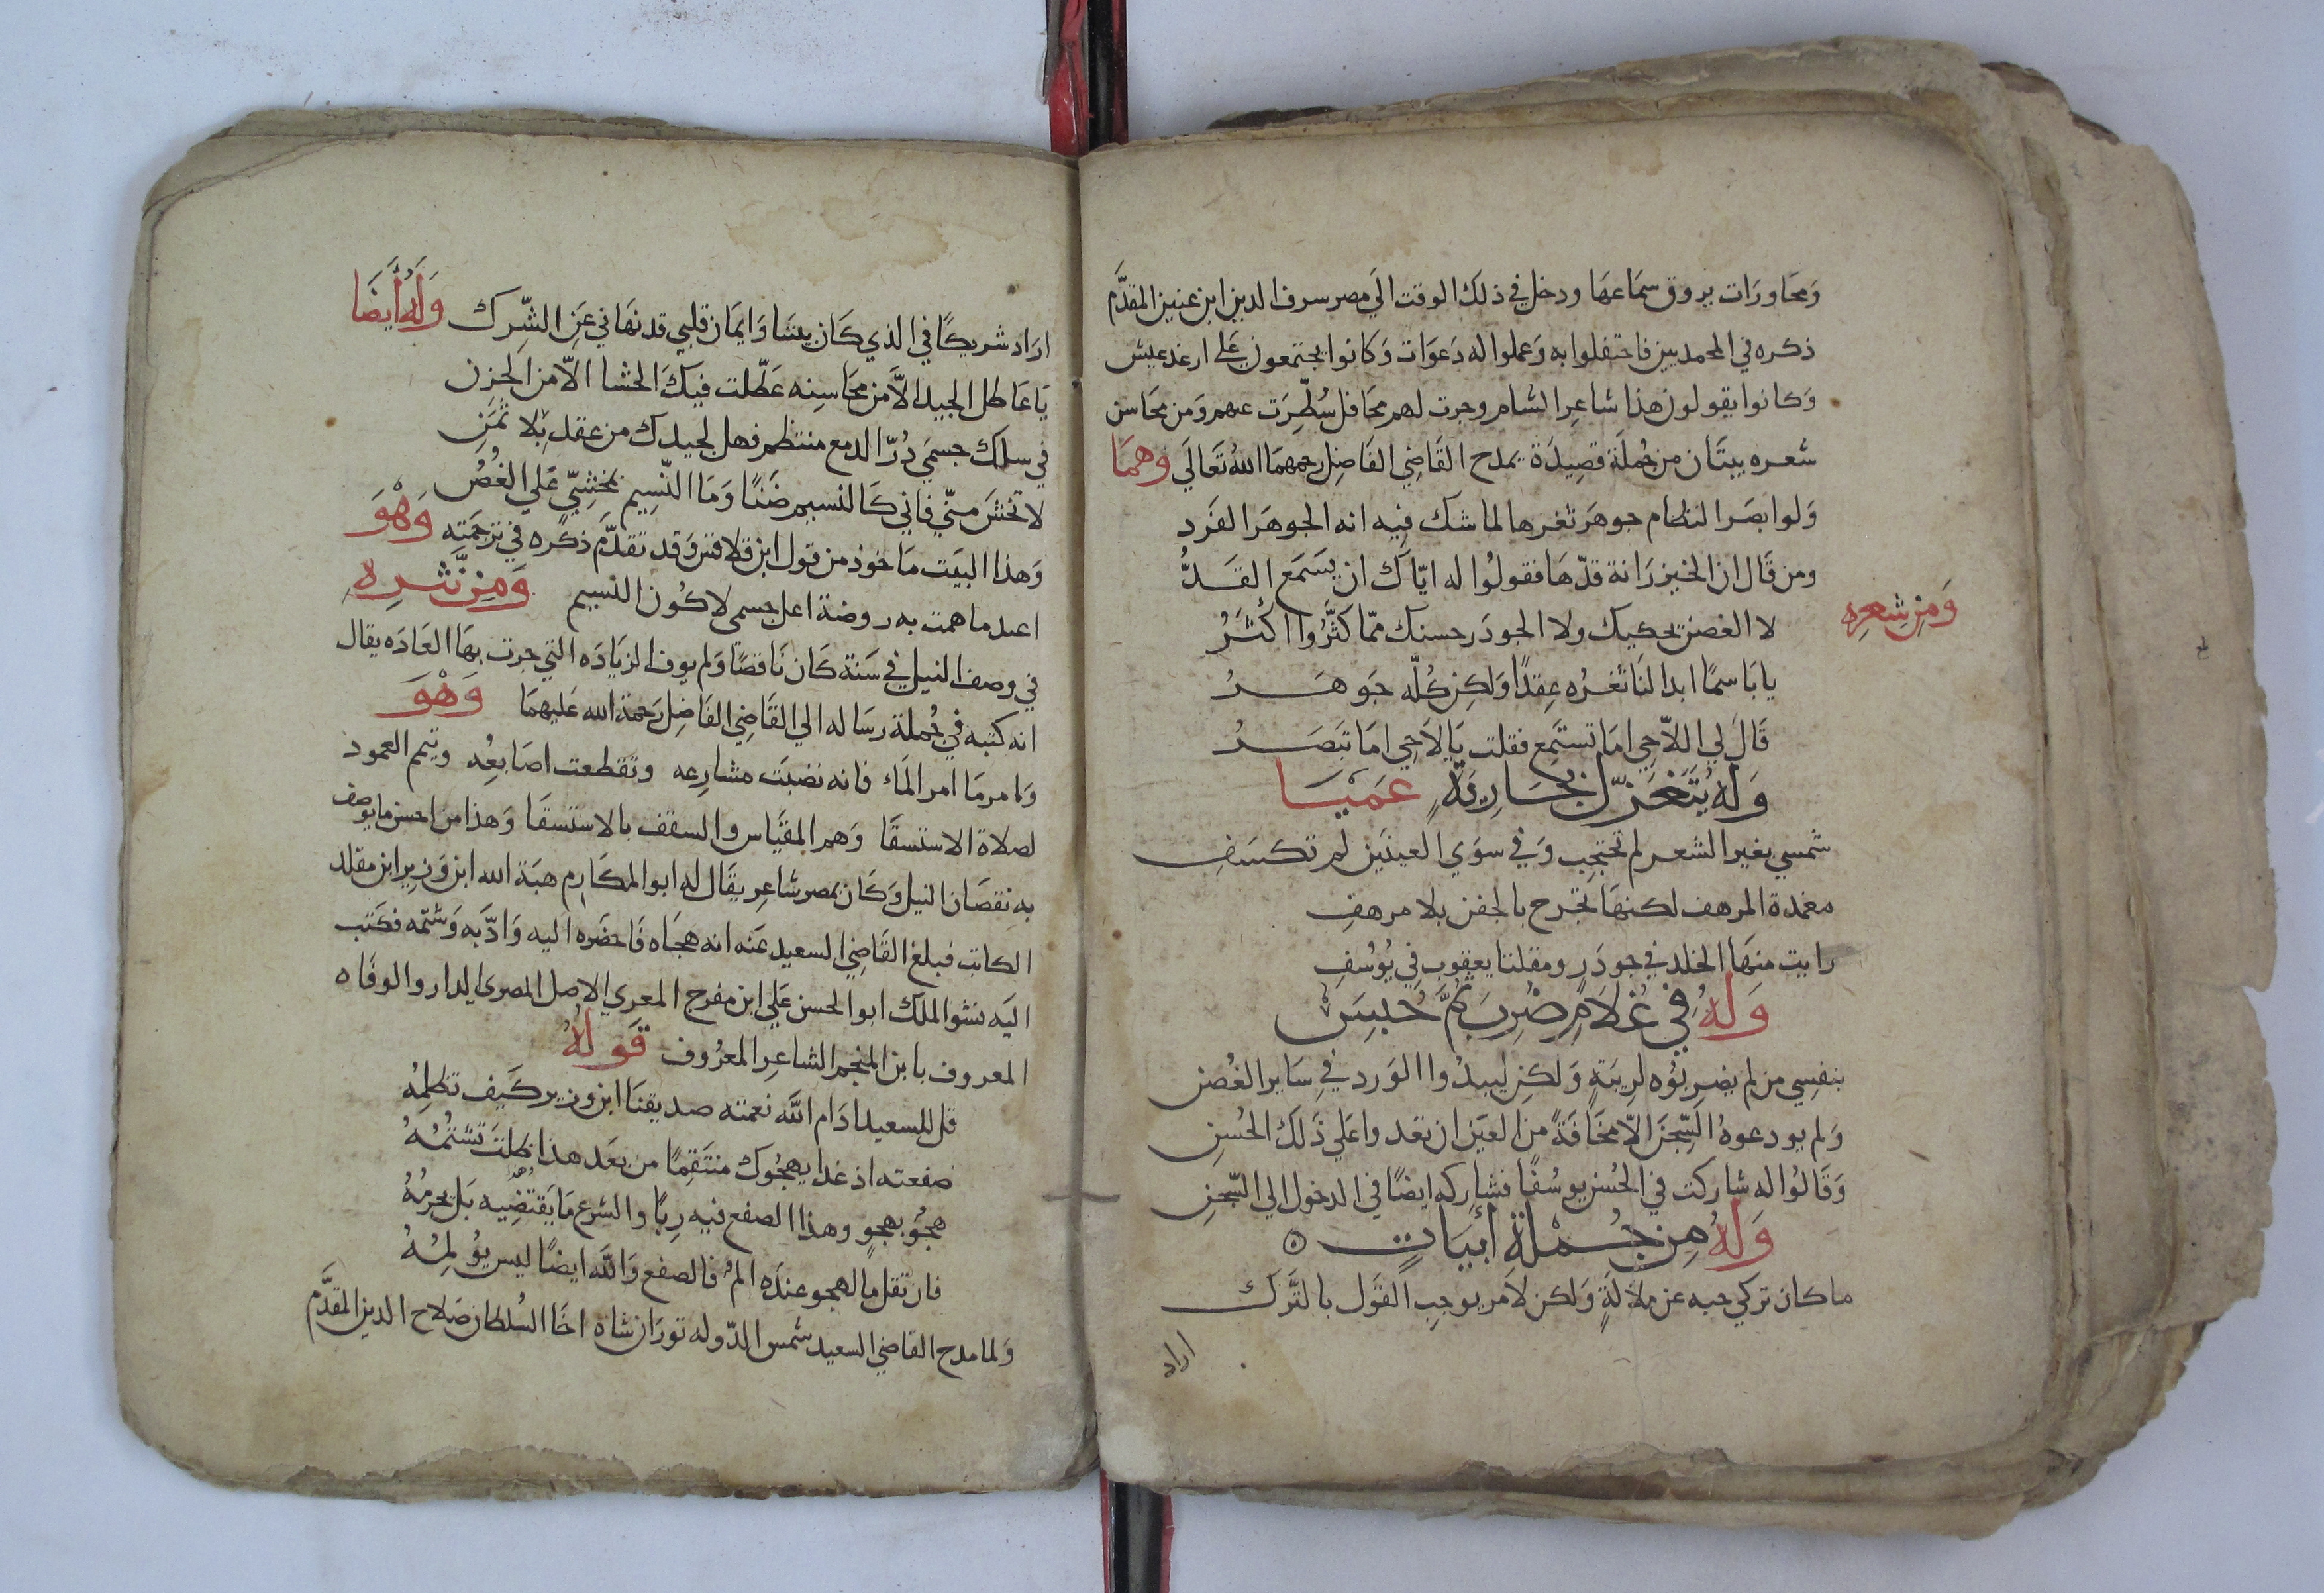 وَمحَاورَات يروق سمَاعهَا ودخل في ذلك الوقت الَي مصر سرف الدين ابن عنين المقدَّم
ذكره في المحمديين فاحتفلوا به وَعملوا له دَعوَات وَكانوا يجتمعون عَلي ارغد عيش
وَكانوا يقولون هذا شاعِر الشام وجرت لهم محَافل سُطِّرَت عنهم وَمن محَاسن
شعره بيتَان من جُملَة قصِيدَة يمدح القَاضِي الفَاضِل رحمهمَا اللهُ تَعَالَي وَهمَا
وَلو ابصَر النظام جوهَر ثغرها لما شك فِيه انه الجوهَر الفَرد
ومن قَال ان الخيزرَانة قدّهَا فقولُوا له ايّاك ان يسَمَع القَدُّ
وَمِن شِعرِه
لا الغصن يحكيك ولا الجودَر حسنك ممّا كَثَّرُوا اكْثَرُ
يا بَاسمًا ابدا لنَا ثغرُه عِقدًا وَلكِن كُلّه جَوهَرُ
قَالَ لي اللاَّحِي امَا تستَمِع فقلت يَا لاَحِي امَا تبَصَرُ
وَلهُ يُتَغَزّل بجَاريَةٍ عَميَا
شمسي بغير الشعر لم تحتجِب وَفي سوَي العينَين لم تكسَفِ
مغمدة المرهف لكنهَا تجرح بالجفن بلا مرهفِ
رايت منهَا الخلد في جودَرٍ ومقلتا يعقوب فِي يُوسُفِ
وَلهُ فِي غُلاَمٍ ضُرِبَ ثُمَّ حُبِسَ
بنفسِي من لم يضربُوه لرِيبَةٍ وَلكِن ليبدُوا الوَرد فِي سَاير الغُصن
وَلم يودعوهُ السِّجنَ الاّ مخَافَةً من العَين ان تعَدوا عَلي ذَلكَ الحُسنِ
وَقَالُوا له شاركت في الحُسن يوسُفًا فشاركه ايضًا في الدخول الي السّجنِ
وَلهُ مِن جُملَة أَبيَاتٍ
ما كان تركي حبه عن ملاَلَةٍ وَلكن لاَمر يوجب القَول بالتَّرك
اراد
اراد شريكًا في الذي كَان بيننَا وَايمَان قلبي قد نهَاني عَن الشِّرك وَلَهُ أَيضَا
يَا عَاطل الجيد الاَّ من محَاسِنِه عَطّلت فيكَ الحشا الاّ من الحزن
في سلك جسمَي دُرّ الدمع منتظم فهل لجيدك من عقد بِلا ثمَنِ
لا تخشَ منّي فاني كَالنسيم ضَنًا وَمَا النّسِيم بمخشِيّ عَلي الغُصُن
وَهذا البَيت مَاخوذ من قول ابن قلاقس وَقد تقدَّم ذكره في ترجمَتِه وَهْوَ
اعند ما همت به روضة اعل جسمى لاكُون النسيم وَمِن نَّثرِهِ
في وصف النيل في سَنة كَان نَاقصًا وَلم يوف الزيَادَه التي جرت بهَا العَادَه يقال
انه كتبه في جُملة رسَاله الي القَاضِي الفَاضِل رَحمة الله عَليهمَا وَهْوَ
وَامر مَا امر المَاء فانه نضبَت مشارعِه وتقطعت اصَابعُِه وتيم العمود
لصلاة الاستسقَا وَهم المقيَاس والسقف بالاستسقَا وَهذا من احسن ما يوصف
به نقصَان النيل وَكَان بمصر شاعِر يقَال له ابو المكَارم هبَة الله ابن وَزير ابن مقلد
الكاتب فبلغ القَاضِي السعيد عَنه انه هجَاه فَاحضَره اليه وَادَّبه وَشتمه فكَتب
اليَه نشو الملك ابو الحسن عَلي ابن مفرج المعري الاصل المصري الدار والوفَاه
المعروف بابن المنجم الشاعِر المعرُوف قَولهُ
قل للسعيد ادَام اللَّه نعمته صديقنَا ابن وزير كَيف تظلمِهُ
صفعته اذ غدا يهجُوك منتَقمِاً من بعَد هذا ظَلتَ تشتمُهُ
هجُوٌ بهجوٍ وهذا الصفع فيه رِبًا والشرع مَا يقتضِيه بَل يحرمُهُ
فان تقل ما لهجوٍ عنده المٌ فالصفع وَاللَّه ايضًا ليس يُؤلمِهُ
وَلما مدح القاضِي السعيد شمس الدّوله تورَان شاه اخَا السُلطان صَلاح الدين المقدَّم